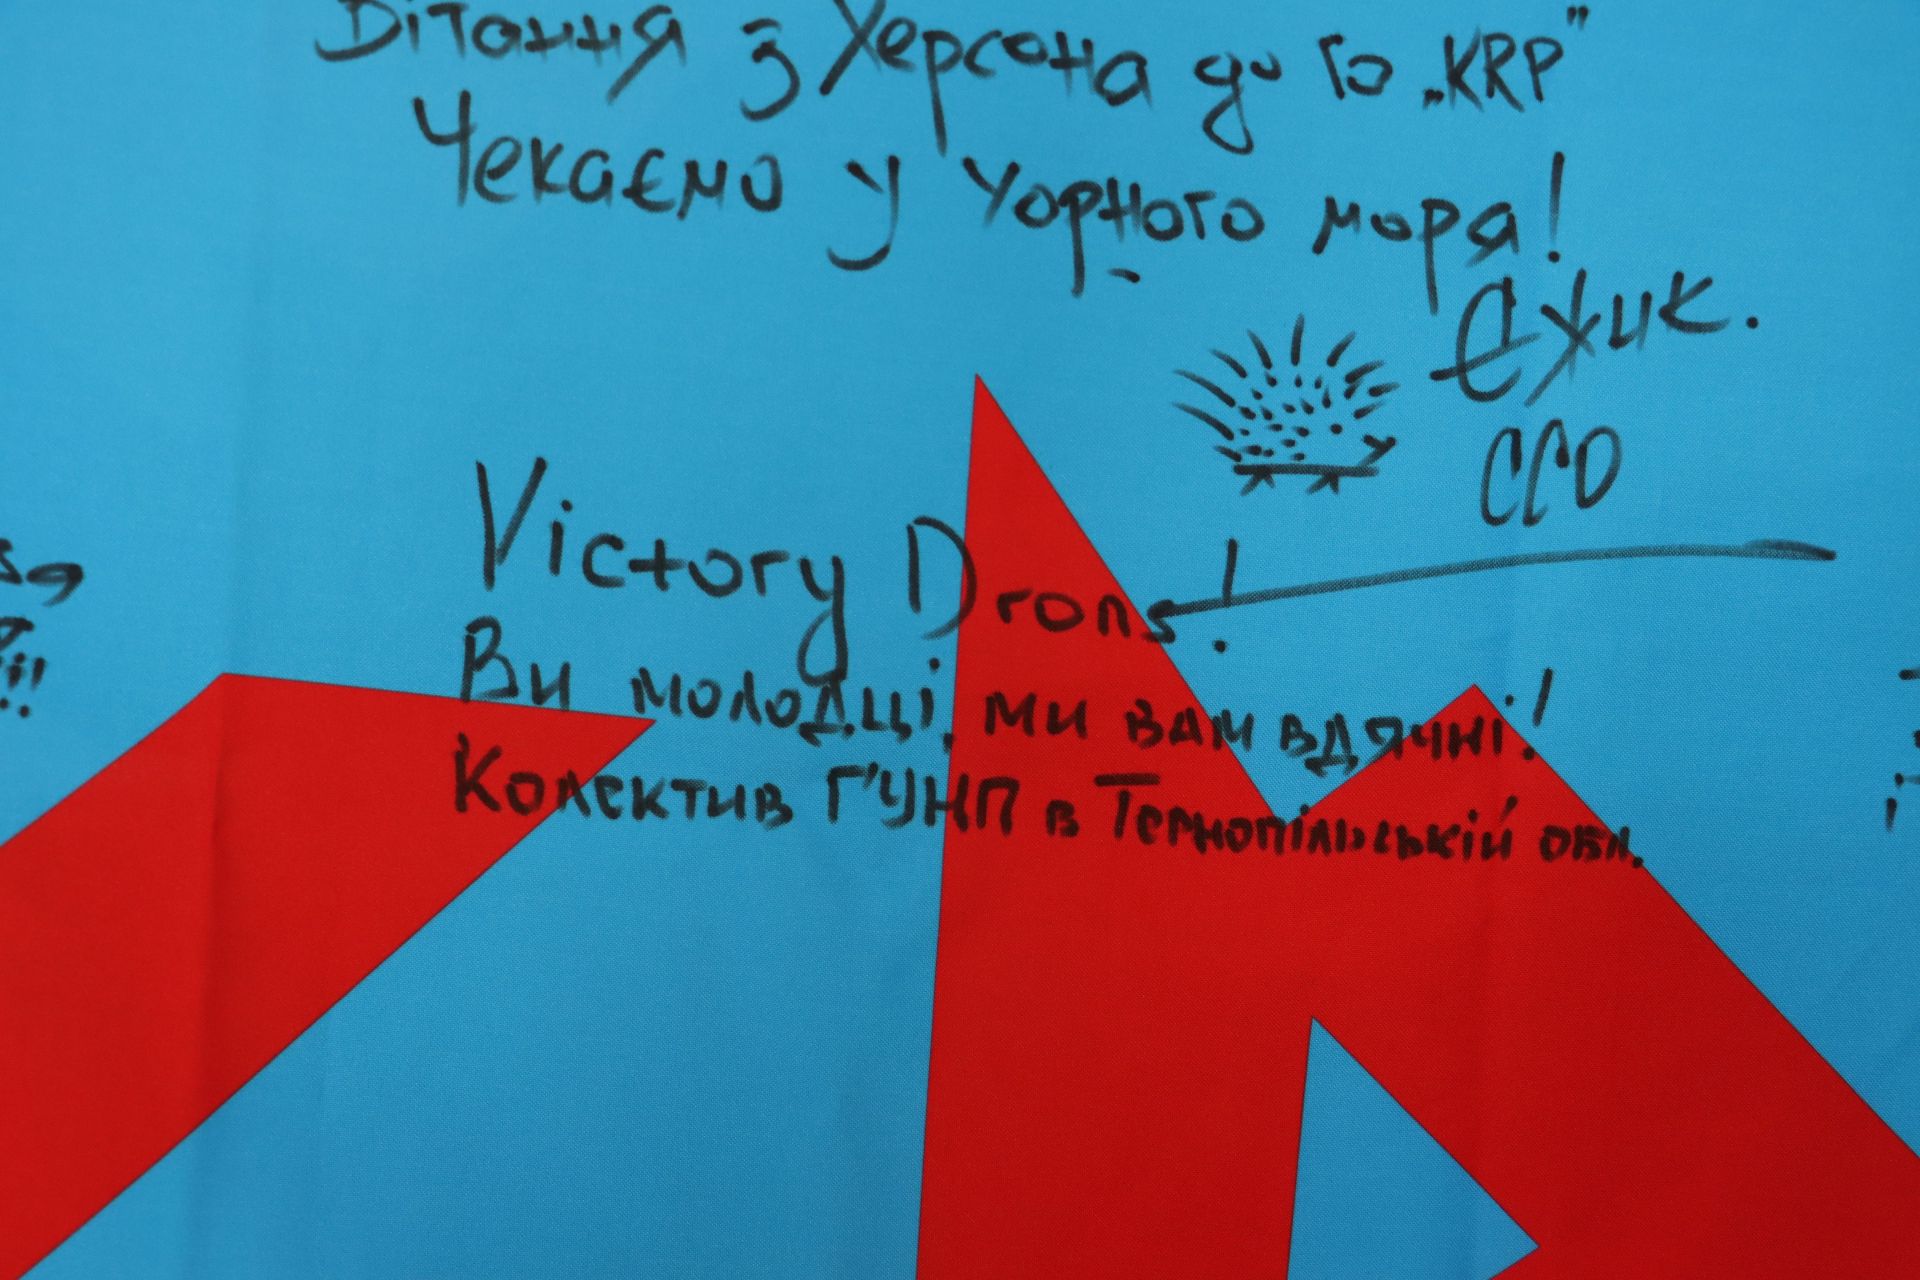 Вітання з Херсона до ГО „KRP"
Чекаємо у Чорного моря!
Єжик.
ССО
Victory Drons!
Ви молодці, ми вам вдячні!
Колектив ГУНП в Тернопільській обл.